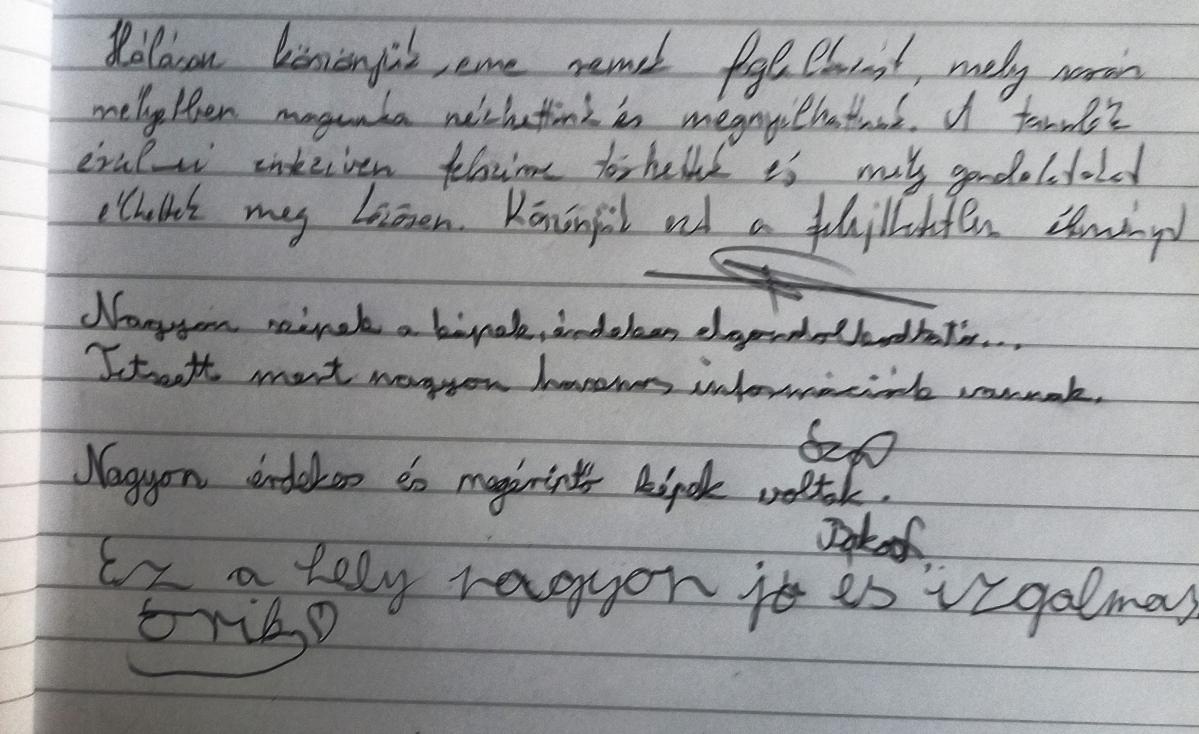 Hálásan köszönjük eme remek foglalkozást, mely során
mélyebben magunkba nézhettünk és megnyílhattunk. A tanulók
érzelmei felszínre törhettek és mély gondolatokat
élhettek meg közösen. Köszönjük ezt a felejthetetlen élményt
Nagyon szépek a képek, érdekesen elgondolkodtató...
Tetszett mert nagyon hasznos információk vannak.
Nagyon érdekes és megérintő képek voltak.
Ez a hely nagyon jó es izgalmas